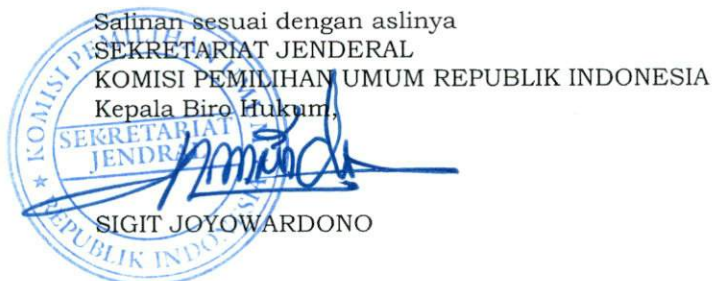 Salinan sesuai dengan aslinya
SEKRETARIAT JENDERAL
KOMISI PEMILIHAN UMUM REPUBLIK INDONESIA
Kepala Biro Hukum,
SIGIT JOYOWARDONO
KOMISI PEMILIHAN UMUM
SEKRETARIAT
JENDRAL
REPUBLIK INDONESIA